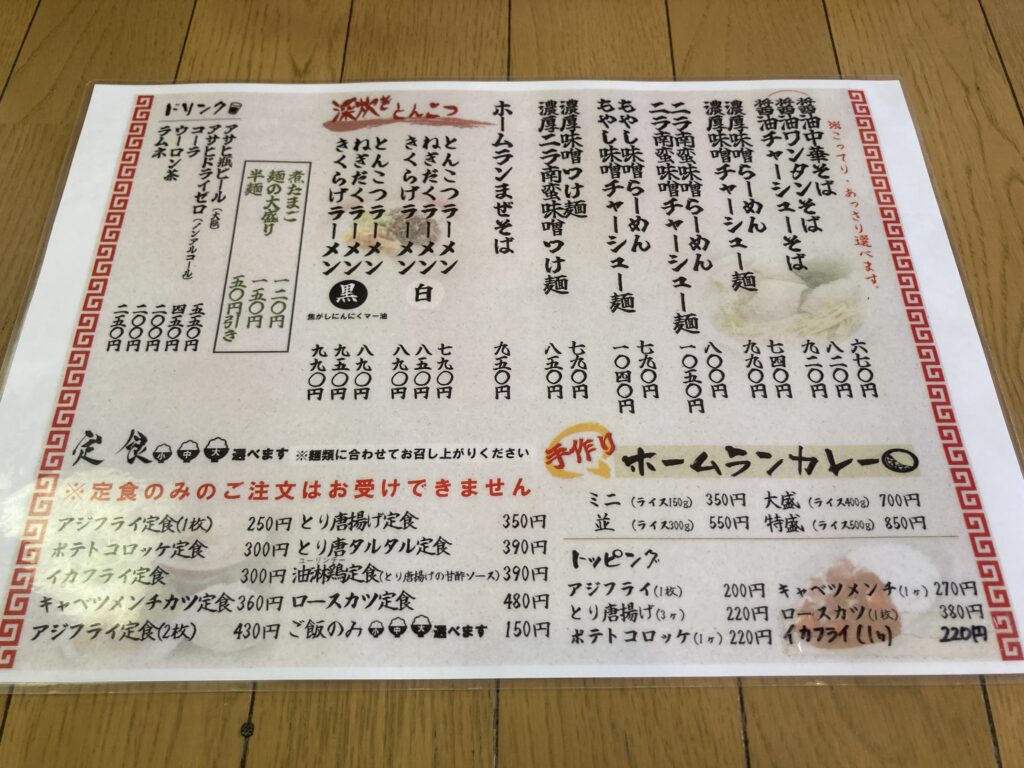 ※こってり、あっさり選べます。
醤油中華そば 六七〇円
醤油ワンタンそば 八二〇円
醤油チャーシューそば 九二〇円
濃厚味噌らーめん 七四〇円
濃厚味噌チャーシュー麺 九九〇円
ニラ南蛮味噌らーめん 八〇〇円
ニラ南蛮味噌チャーシュー麺 一〇五〇円
もやし味噌らーめん 七九〇円
もやし味噌チャーシュー麺 一〇四〇円
濃厚味噌つけ麺 七九〇円
濃厚ニラ南蛮味噌つけ麺 八五〇円
ホームランまぜそば 九五〇円
深炊きとんこつ
白
とんこつラーメン 七九〇円
ねぎだくラーメン 八五〇円
きくらげラーメン 八九〇円
黒
焦がしにんにくマー油
とんこつラーメン 八九〇円
ねぎだくラーメン 九五〇円
きくらげラーメン 九九〇円
煮たまご 一二〇円
麺の大盛り 一五〇円
半麺 五〇円引き
ドリンク
アサヒ瓶ビール（大瓶） 五五〇円
アサヒドライゼロ（ノンアルコール） 四五〇円
コーラ 二〇〇円
ウーロン茶 二〇〇円
ラムネ 二五〇円
定食 小 中 大 選べます ※麺類に合わせてお召し上がりください
※定食のみのご注文はお受けできません
アジフライ定食(1枚) 250円
ポテトコロッケ定食 300円
イカフライ定食 300円
キャベツメンチカツ定食 360円
アジフライ定食(2枚) 430円
とり唐揚げ定食 350円
とり唐タルタル定食 390円
ユーリンチー
油淋鶏定食(とり唐揚げの甘酢ソース) 390円
ロースカツ定食 480円
ご飯のみ 小 中 大 選べます 150円
手作り ホームランカレー
ミニ (ライス150g) 350円 大盛 (ライス400g) 700円
並 (ライス300g) 550円 特盛 (ライス500g) 850円
トッピング
アジフライ(1枚) 200円 キャベツメンチ(1ヶ) 270円
とり唐揚げ(3ヶ) 220円 ロースカツ(1枚) 380円
ポテトコロッケ(1ヶ) 220円 イカフライ(1ヶ) 220円